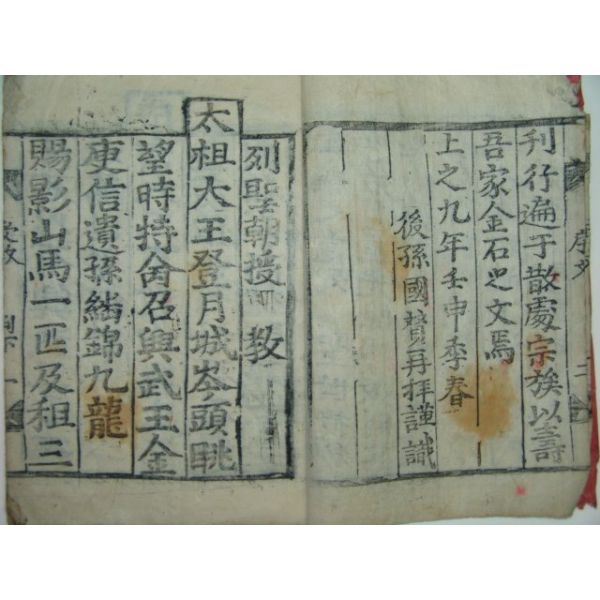 刊行遍于散處宗族以壽
吾家金石之文焉
上之九年壬申季春
後孫國賛再拜謹識
序文
二
列聖朝授 教
太祖大王登月城岑頭眺
望時特命召興武王金
庾信遺孫繡錦九龍
賜影山馬一匹及租三
受教
一